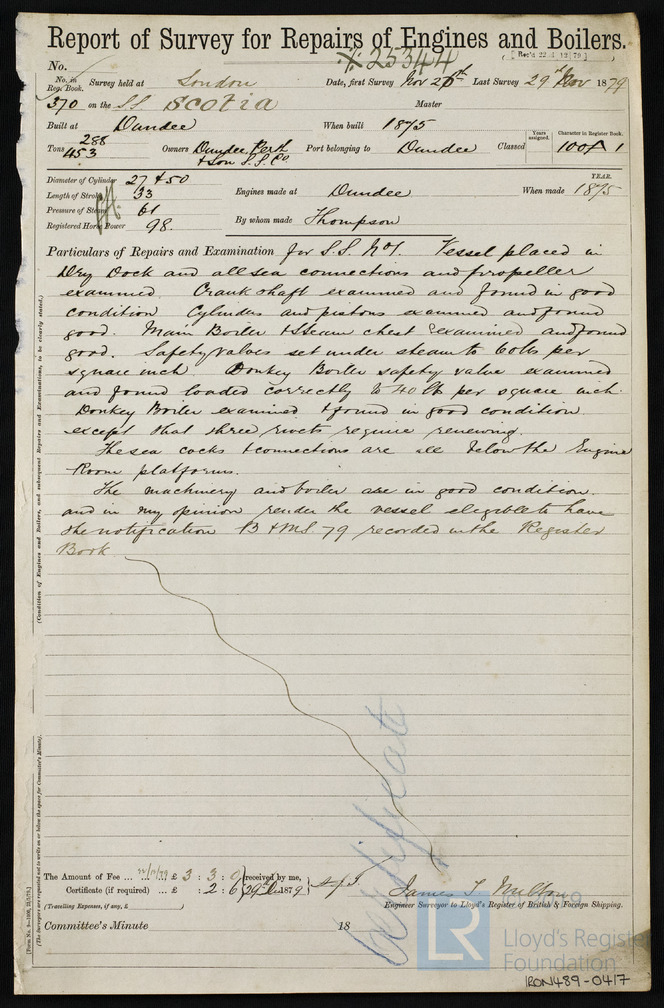 Report of Survey for Repairs of Engines and Boilers.
No. 25344 [Rec'd 22 12 79]
No. in Reg. Book. Survey held at London Date, first Survey Nov 26th Last Survey 29th Nov 1879
370 on the SS Scotia Master
Built at Dundee When built 1875 Years assigned. Character in Register Book.
Tons 288 453 Owners Dundee Perth & Lon S.S. Co Port belonging to Dundee Classed 100A 1
Diameter of Cylinder 27 & 50 YEAR.
Length of Stroke 33 Engines made at Dundee When made 1875
Pressure of Steam 61
Registered Horse Power 98. By whom made Thompson
Particulars of Repairs and Examination for S.S. No 1. Vessel placed in
Dry Dock and all sea connections and propeller
examined. Crank shaft examined and found in good
condition Cylinders and pistons examined and found
good. Main Boiler & Steam chest examined and found
good. Safety valves set under steam to 60 lbs per
square inch. Donkey Boiler safety valve examined
and found loaded correctly to 40 lb per square inch.
Donkey Boiler examined & found in good condition
except that three rivets require renewing.
The sea cocks & connections are all below the Engine
Room platforms.
The machinery and boiler are in good condition.
and in my opinion render the vessel elegible to have
the notification B & MS. 79 recorded in the Register
Book
(Condition of Engines and Boilers, and subsequent Repairs and Examinations, to be clearly stated.)
Certificate
The Amount of Fee ... £ 3 : 3 : 0 received by me,
Certificate (if required) ... £ : 2 : 6 1879
(Travelling Expenses, if any, £ )
James T Milton
Engineer Surveyor to Lloyd's Register of British & Foreign Shipping.
Committee's Minute 18
(The Surveyors are requested not to write on or below the space for Committee's Minute).
LR Lloyd's Register Foundation
IRON489-0417